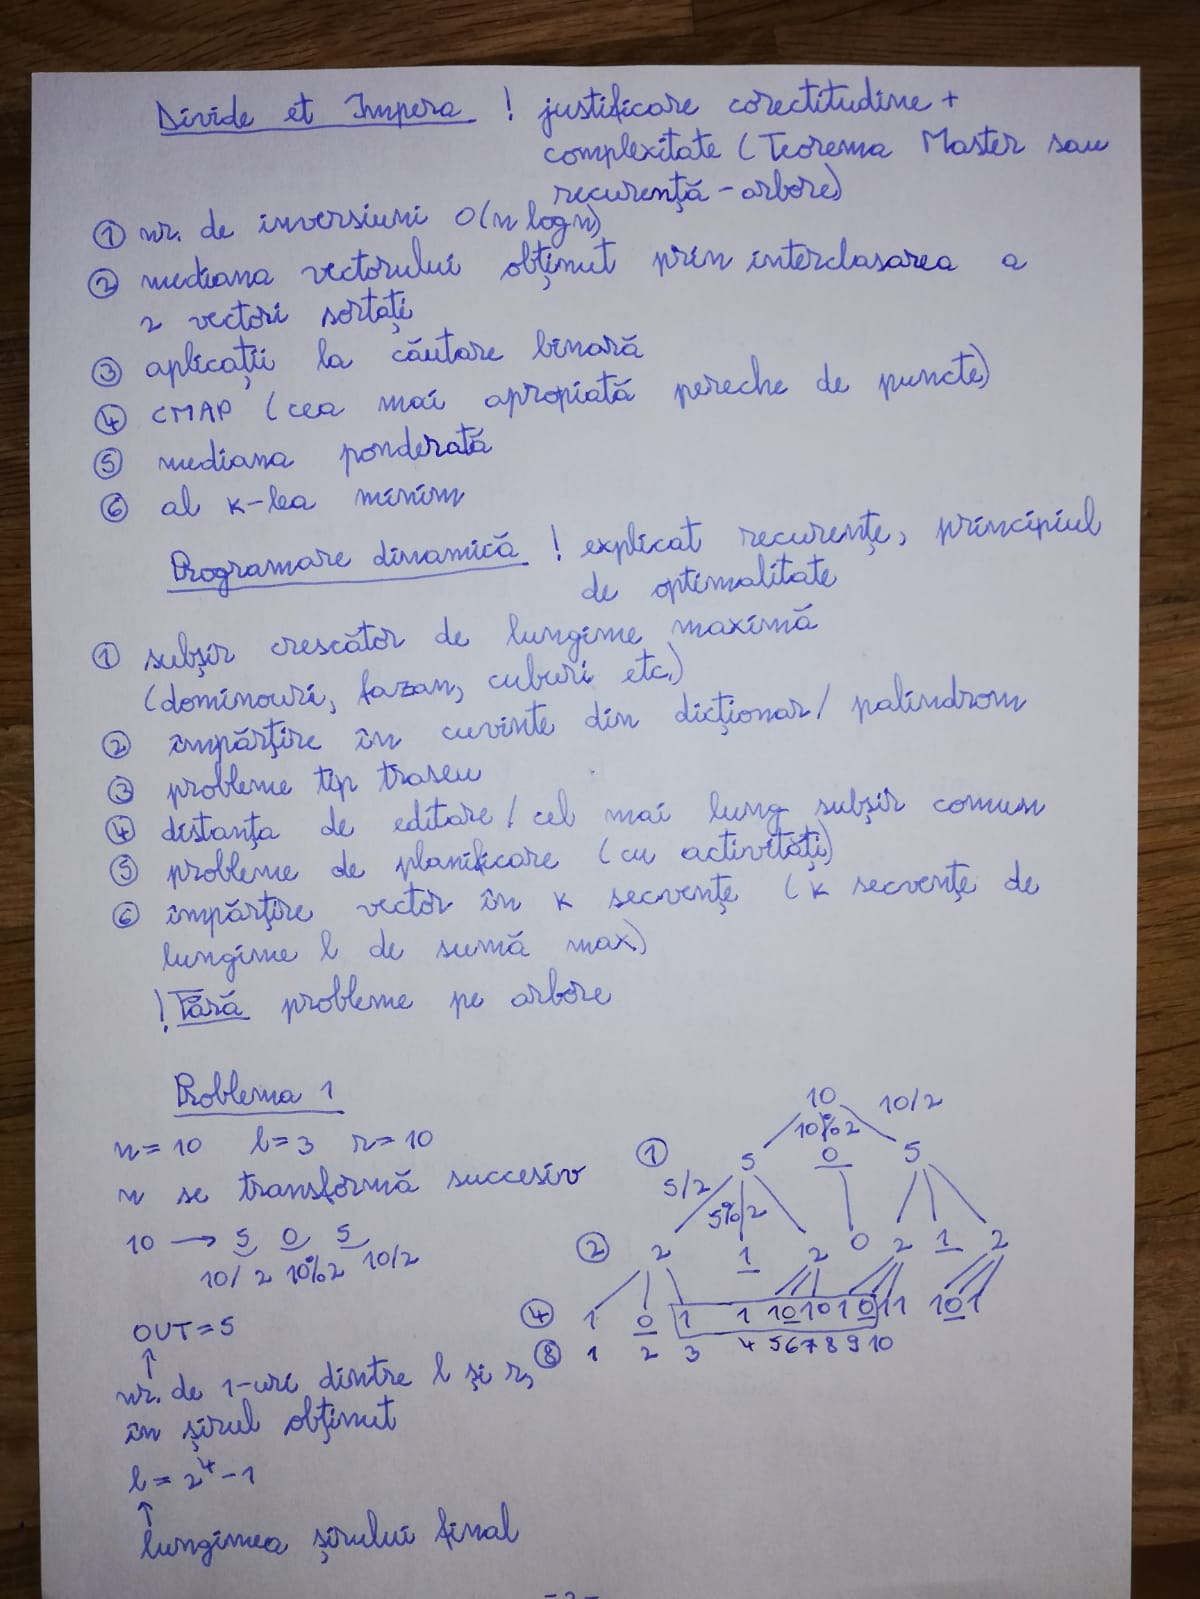 Divide et Impera ! justificare corectitudine +
complexitate (Teorema Master sau
recurență - arbore)
① nr. de inversiuni O(n log n)
② mediana vectorului obținut prin interclasarea a
2 vectori sortați
③ aplicații la căutare binară
④ CMAP (cea mai apropiată pereche de puncte)
⑤ mediana ponderată
⑥ al k-lea minim
Programare dinamică ! explicat recurențe, principiul
de optimalitate
① subșir crescător de lungime maximă
(dominouri, fazan, cuburi etc.)
② împărțire în cuvinte din dicționar / palindrom
③ probleme tip traseu
④ distanța de editare / cel mai lung subșir comun
⑤ probleme de planificare (cu activități)
⑥ împărțire vector în k secvențe (k secvențe de
lungime l de sumă max)
! Fără probleme pe arbore
Problema 1
n = 10 l = 3 r = 10
n se transformă succesiv
10 → 5 0 5
10/2 10%2 10/2
OUT = 5
↑
nr. de 1-uri dintre l și r,
în șirul obținut
l = 2^4 - 1
↑
lungimea șirului final
10
10%2 10/2
① 5 0 5
5/2 5%2
② 2 1 2 0 2 1 2
④ 1 0 1 1 1 0 1 0 1 0 1 1 1 0 1
⑧ 1 2 3 4 5 6 7 8 9 10
- 2 -